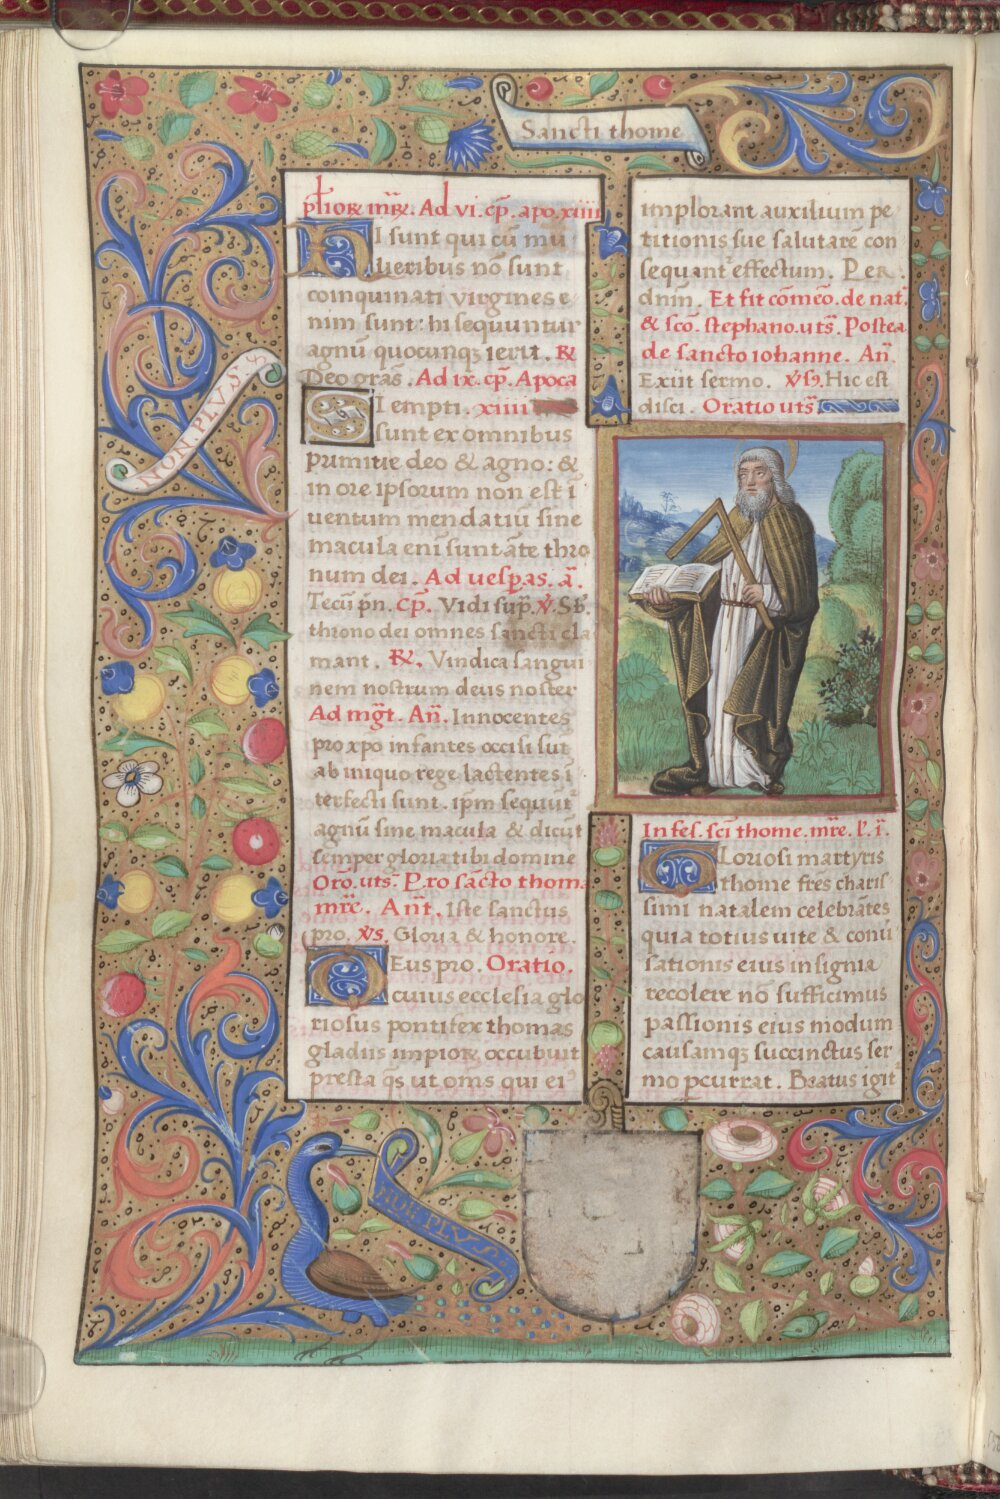 Sancti thome
pliorꝝ mr̄ꝝ. Ad vi. cp̄. apo. xiiii
HI sunt qui cū mu
lieribus nō sunt
coinquinati virgines e
nim sunt: hi sequuntur
agnū quocunqꝫ ierit. ℟
Deo gras̄. Ad ix. cp̄. Apoca
EMpti. xiiii
sunt ex omnibus
primitie deo & agno: &
in ore ipsorum non est ī
uentum mendatiū sine
macula eni sunt āte thro
num dei. Ad uesp̄as. ā.
Tecū pn̄. Cp̄. Vidi sup̄. ℣. Sb̄.
throno dei omnes sancti cla
mant. ℟. Vindica sangui
nem nostrum deus noster
Ad mḡt. An̄. Innocentes
pro xpo infantes occisi sūt
ab iniquo rege lactentes ī
terfecti sunt. ip̄m sequūt
agnū sine macula & dicūt
semper gloria tibi domine
Orō. uts̄. Pro sācto thoma
mr̄e. Ant̄. Iste sanctus
pro. ℣s. Gloria & honore.
DEus pro. Oratio.
cuius ecclesia glo
riosus pontifex thomas
gladiis impiorꝝ occubuit
presta q̄s ut om̄s qui ei
implorant auxilium pe
titionis sue salutarē con
sequant effectum. Per
dn̄m. Et fit cōmēo. de nat.
& sc̄o. stephano. uts̄. Postea
de sancto iohanne. An̄.
Exiit sermo. ℣s. Hic est
disci. Oratio uts̄.
In fes. sc̄i thome. mr̄e. l'. i.
GLoriosi martyris
thome fr̄es charis
simi natalem celebrātes
quia totius uite & conu
sationis eius insignia
recolere nō sufficimus
passionis eius modum
causamqꝫ succinctus ser
mo pcurrat. Beatus igit
NON. PLVS
NON. PLVS